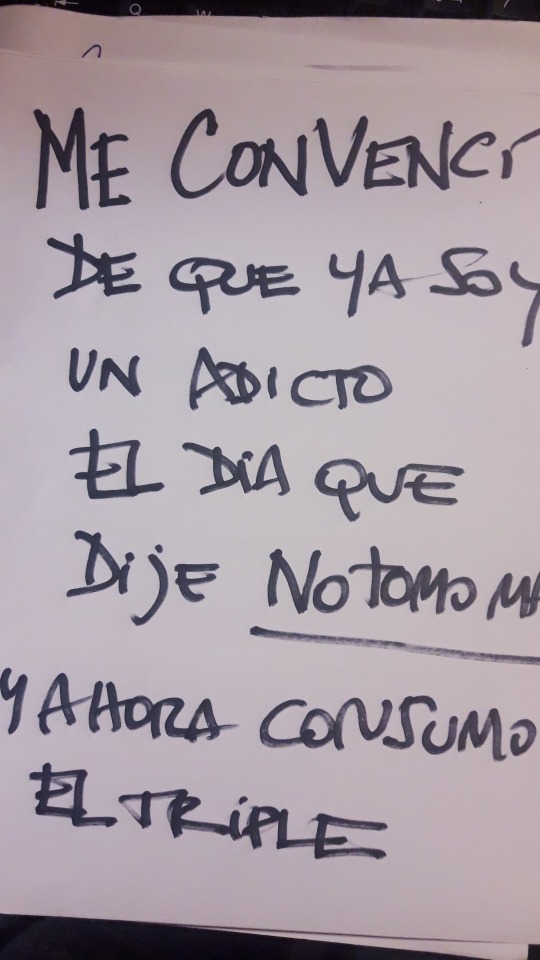 ME CONVENCÍ
DE QUE YA SOY
UN ADICTO
EL DiA QUE
DijE NO tOMO MA
Y AHORA CONSUMO
EL TRiPLE